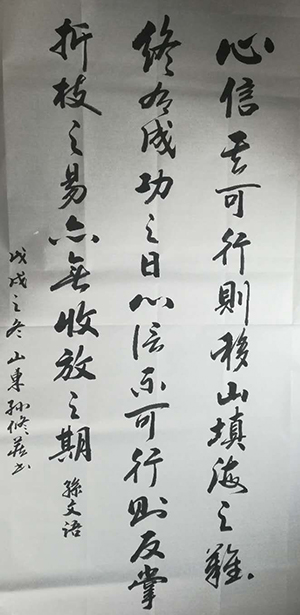 心信其可行則移山填海之難
終有成功之日心信不可行则反掌
折枝之易亦無收放之期
孫文語
戊戌之冬山東孙修书